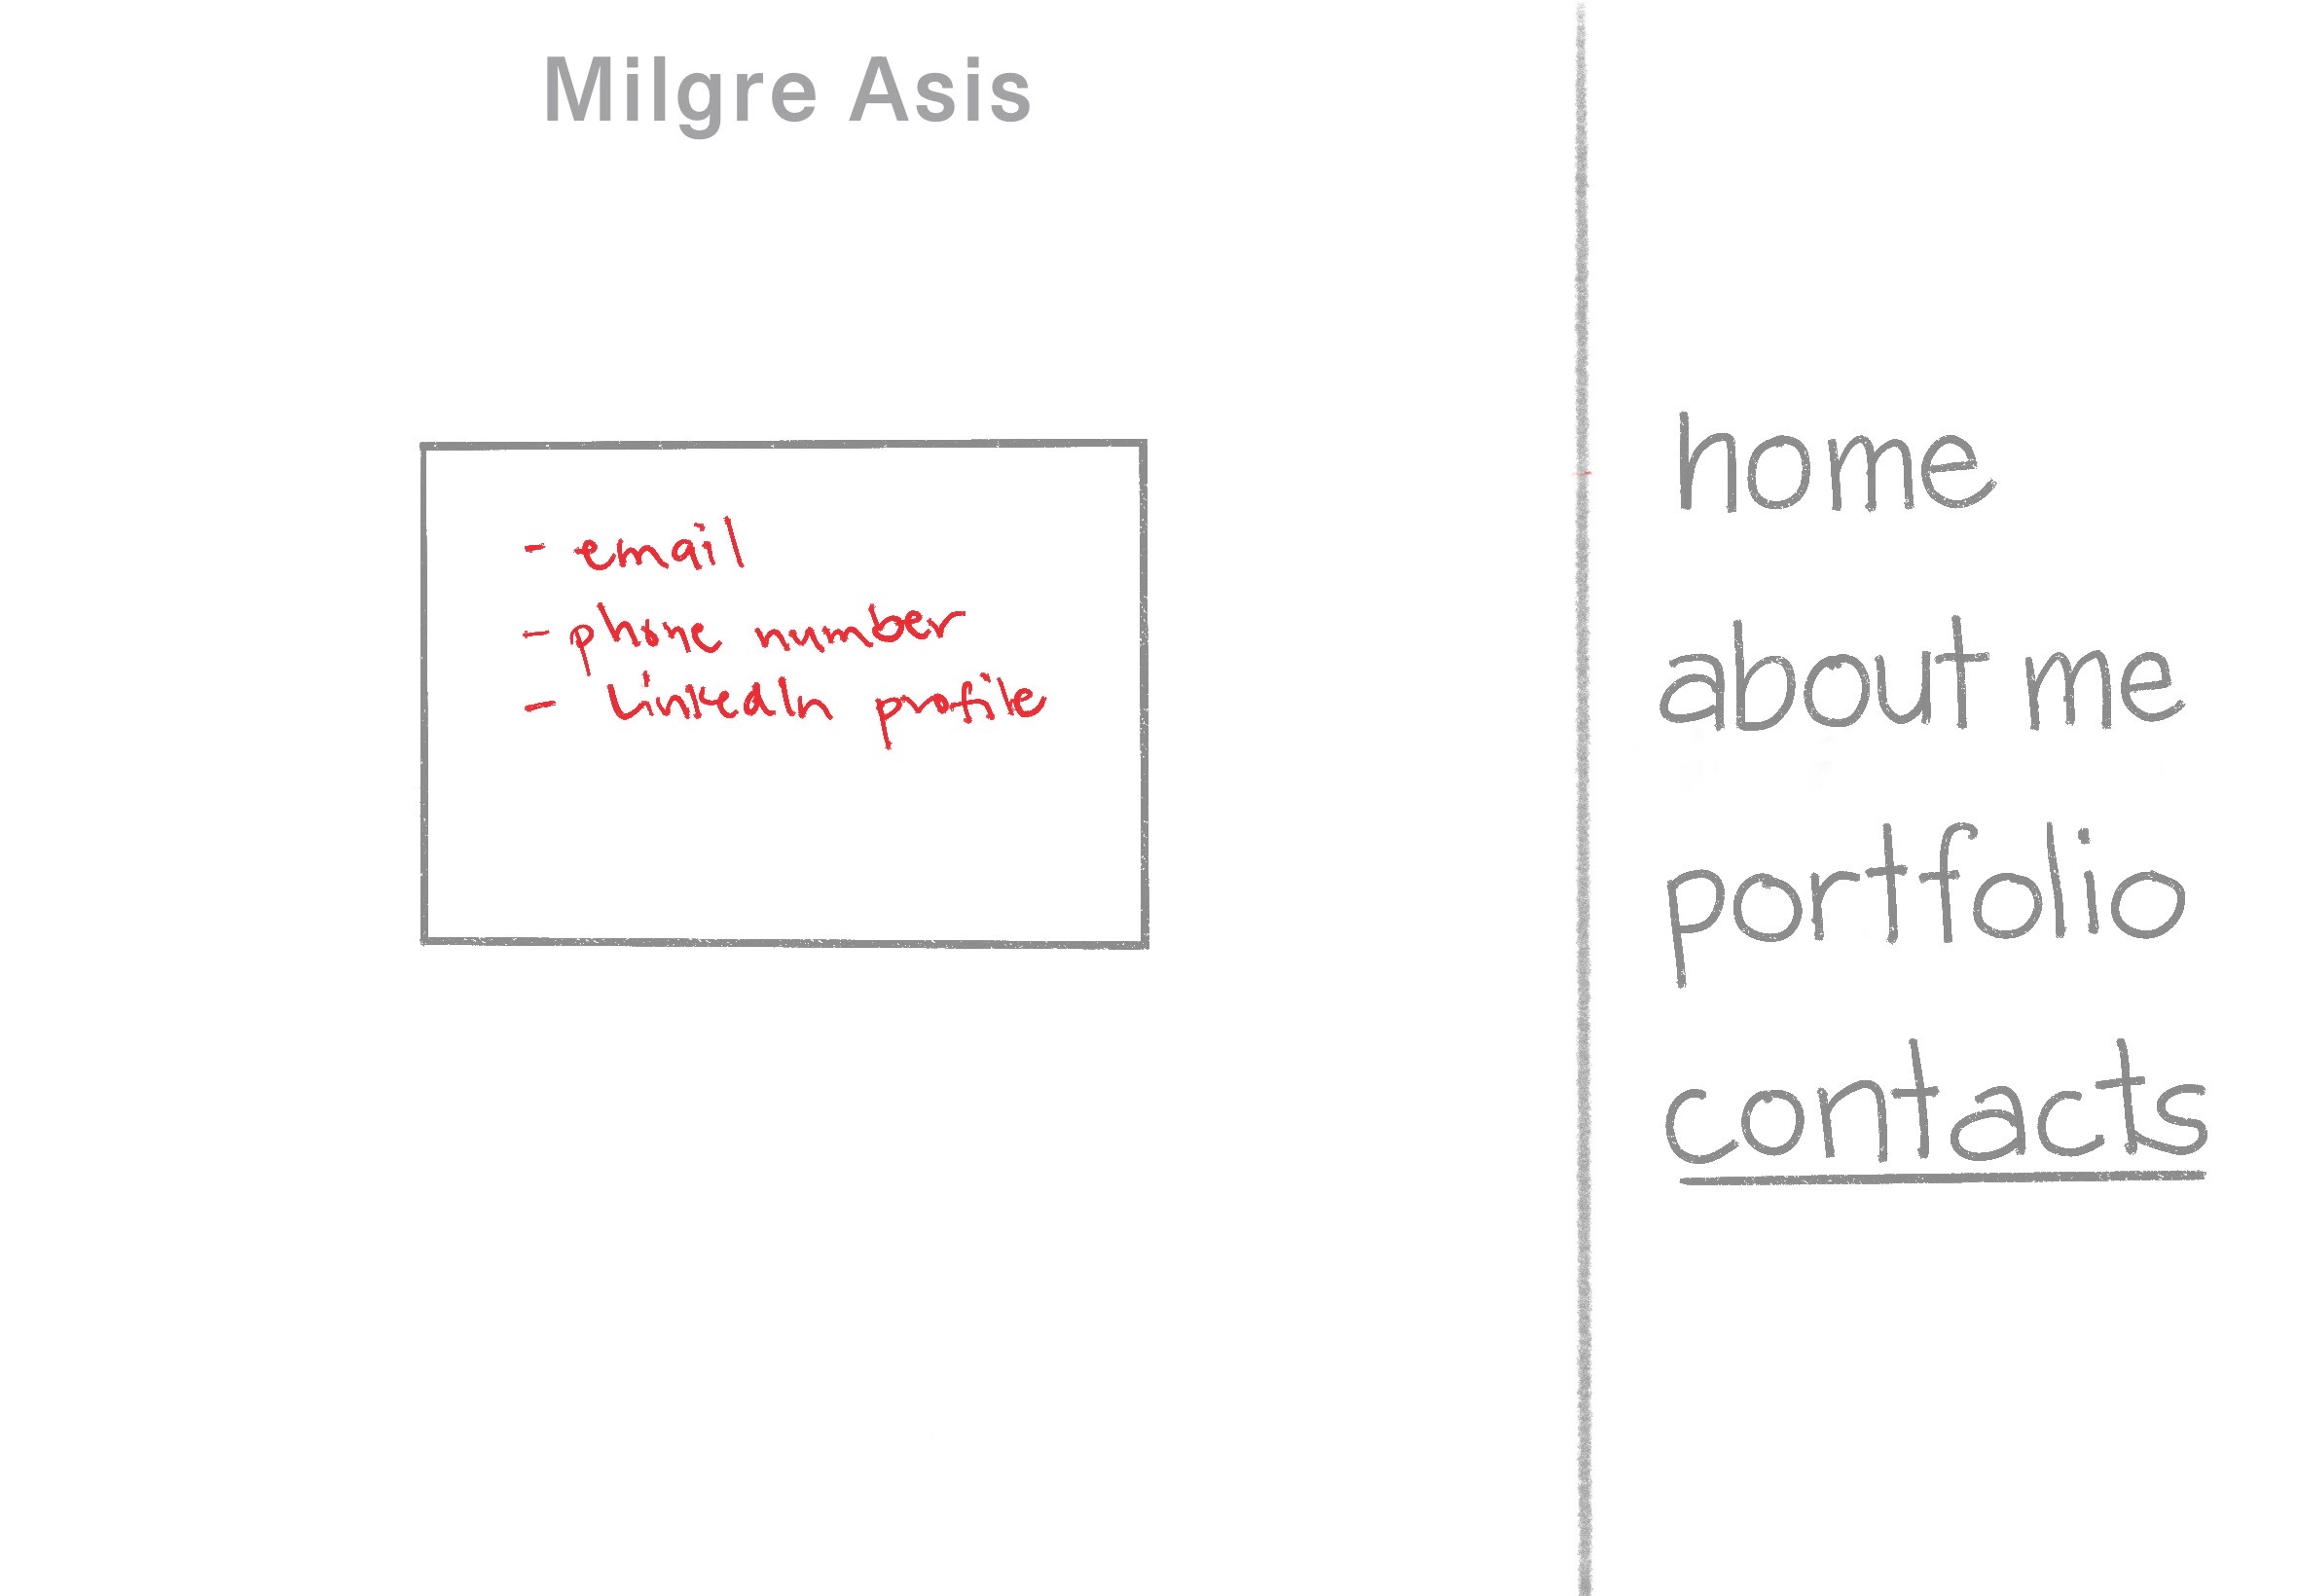 Milgre Asis
- email
- phone number
- LinkedIn profile
home
about me
portfolio
contacts